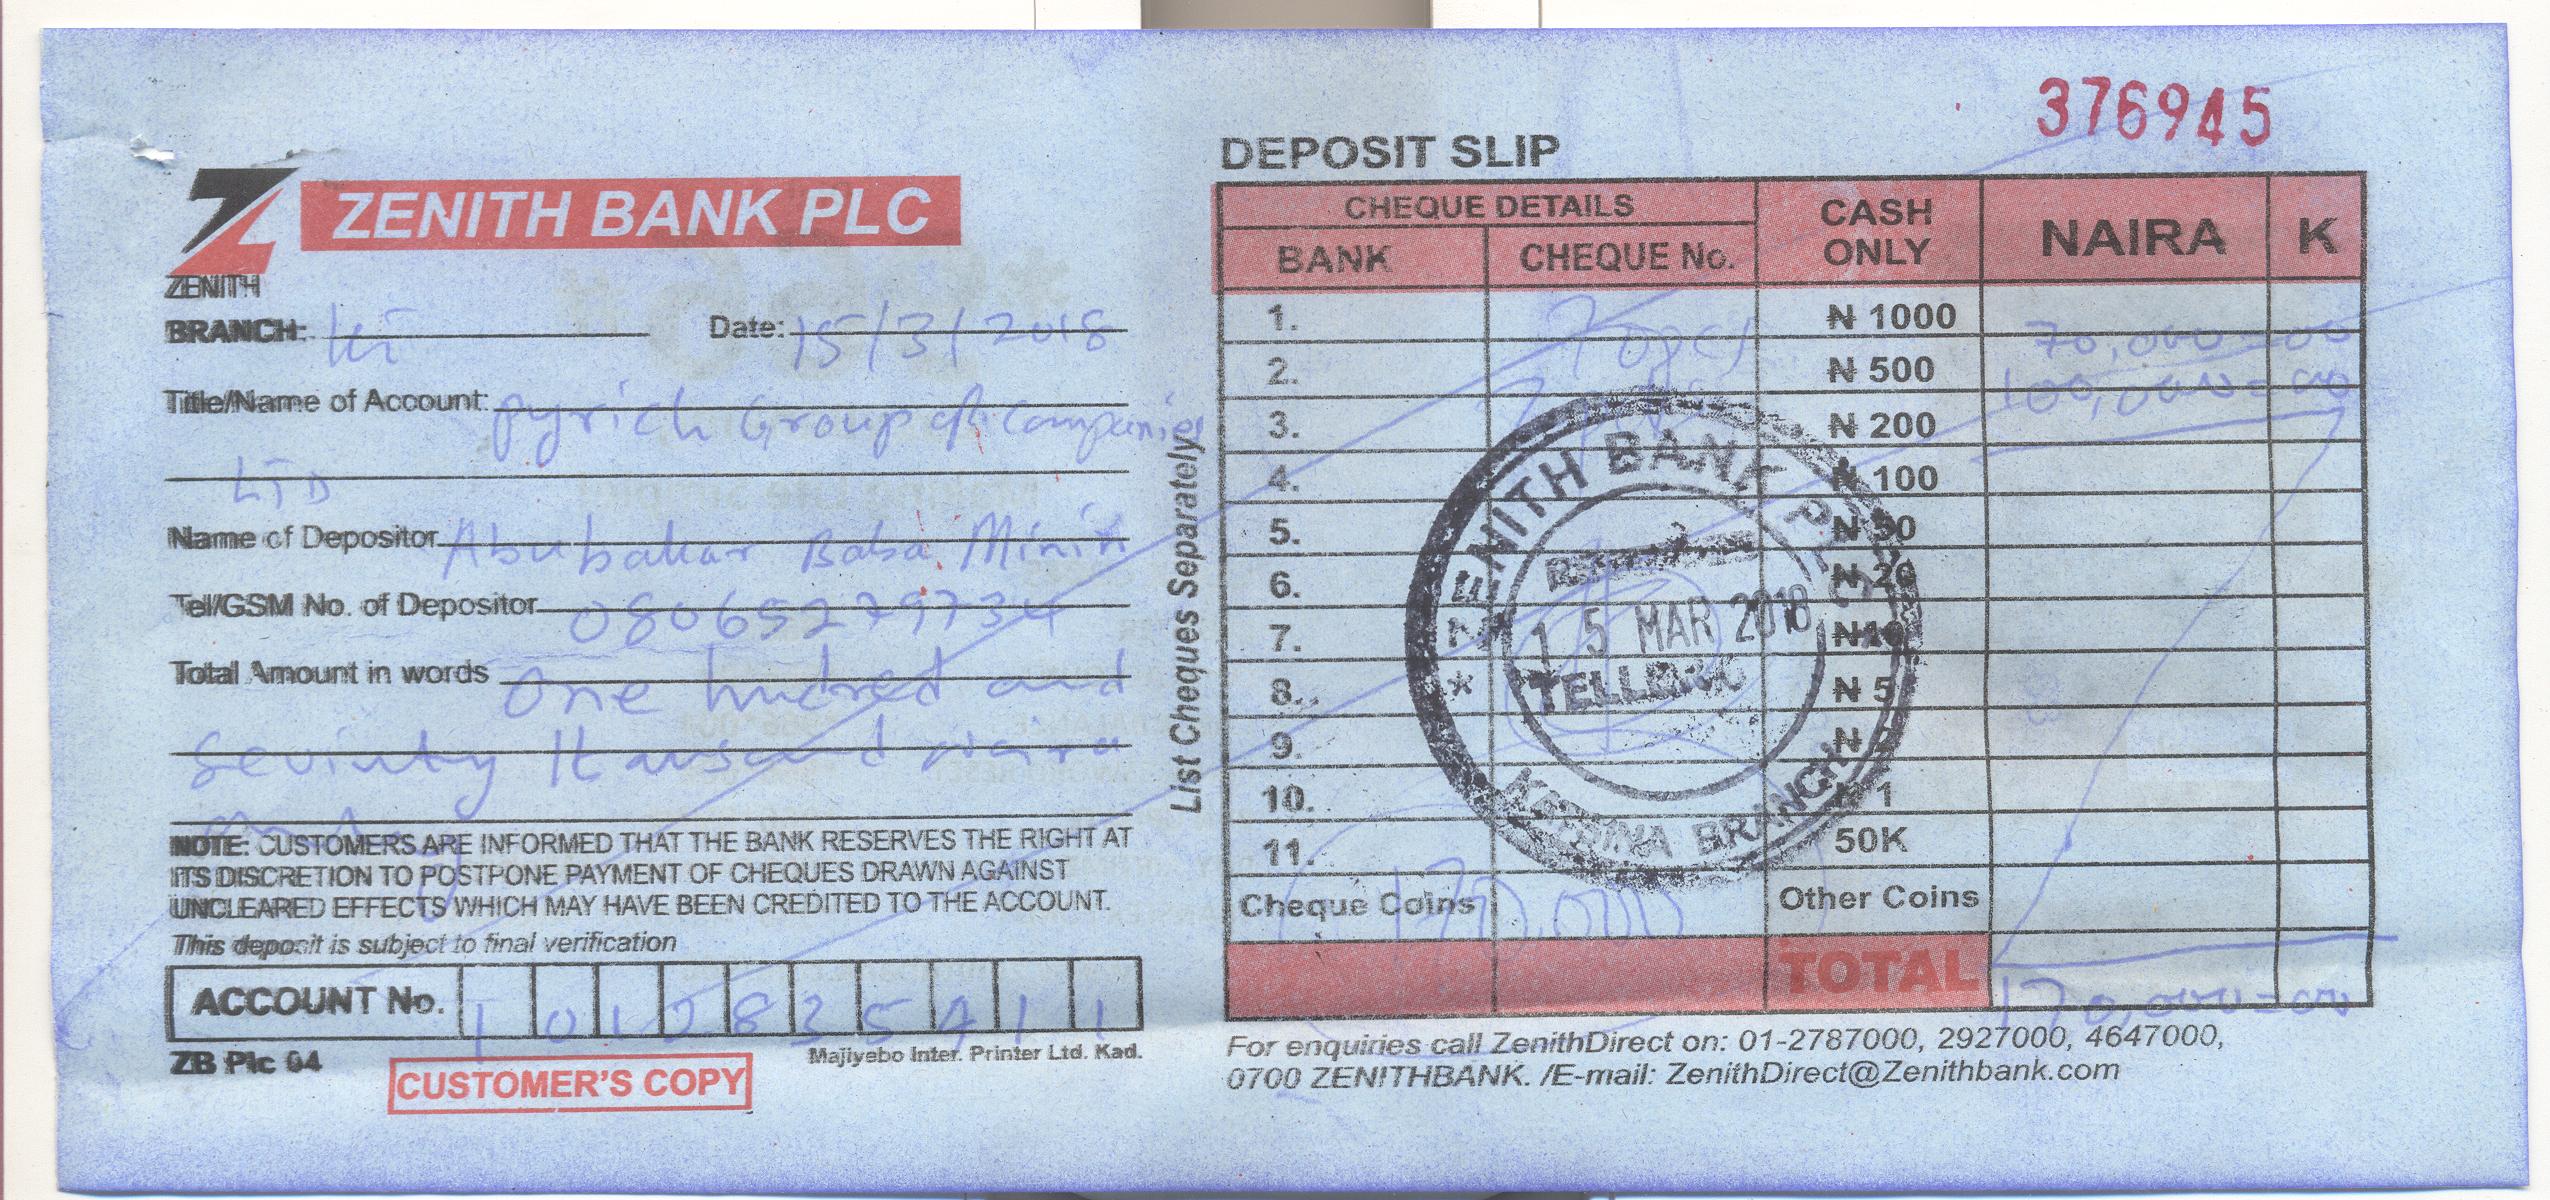 376945
ZENITH BANK PLC
ZENITH
BRANCH: Date: 15/3/2018
Title/Name of Account: Pyrich Group of Companies
LTD
Name of Depositor Abubakar Baba
Tel/GSM No. of Depositor 08065279734
Total Amount in words One hundred and
Sevinty thousand naira
NOTE: CUSTOMERS ARE INFORMED THAT THE BANK RESERVES THE RIGHT AT
ITS DISCRETION TO POSTPONE PAYMENT OF CHEQUES DRAWN AGAINST
UNCLEARED EFFECTS WHICH MAY HAVE BEEN CREDITED TO THE ACCOUNT.
This deposit is subject to final verification
ACCOUNT No.
ZB Plc 04 Majiyebo Inter. Printer Ltd. Kad.
CUSTOMER'S COPY
List Cheques Separately
DEPOSIT SLIP
CHEQUE DETAILS CASH ONLY NAIRA K
BANK CHEQUE No.
1. ₦ 1000 70,000=00
2. ₦ 500 100,000=00
3. ₦ 200
4. ₦ 100
5. ₦ 50
6. ₦ 20
7. ₦ 10
8. ₦ 5
9. ₦
10. ₦ 1
11. 50K
Cheque Coins 170,000 Other Coins
TOTAL 170,000=00
ZENITH BANK PLC
15 MAR 2018
KATSINA BRANCH
For enquiries call ZenithDirect on: 01-2787000, 2927000, 4647000,
0700 ZENITHBANK. /E-mail: ZenithDirect@Zenithbank.com